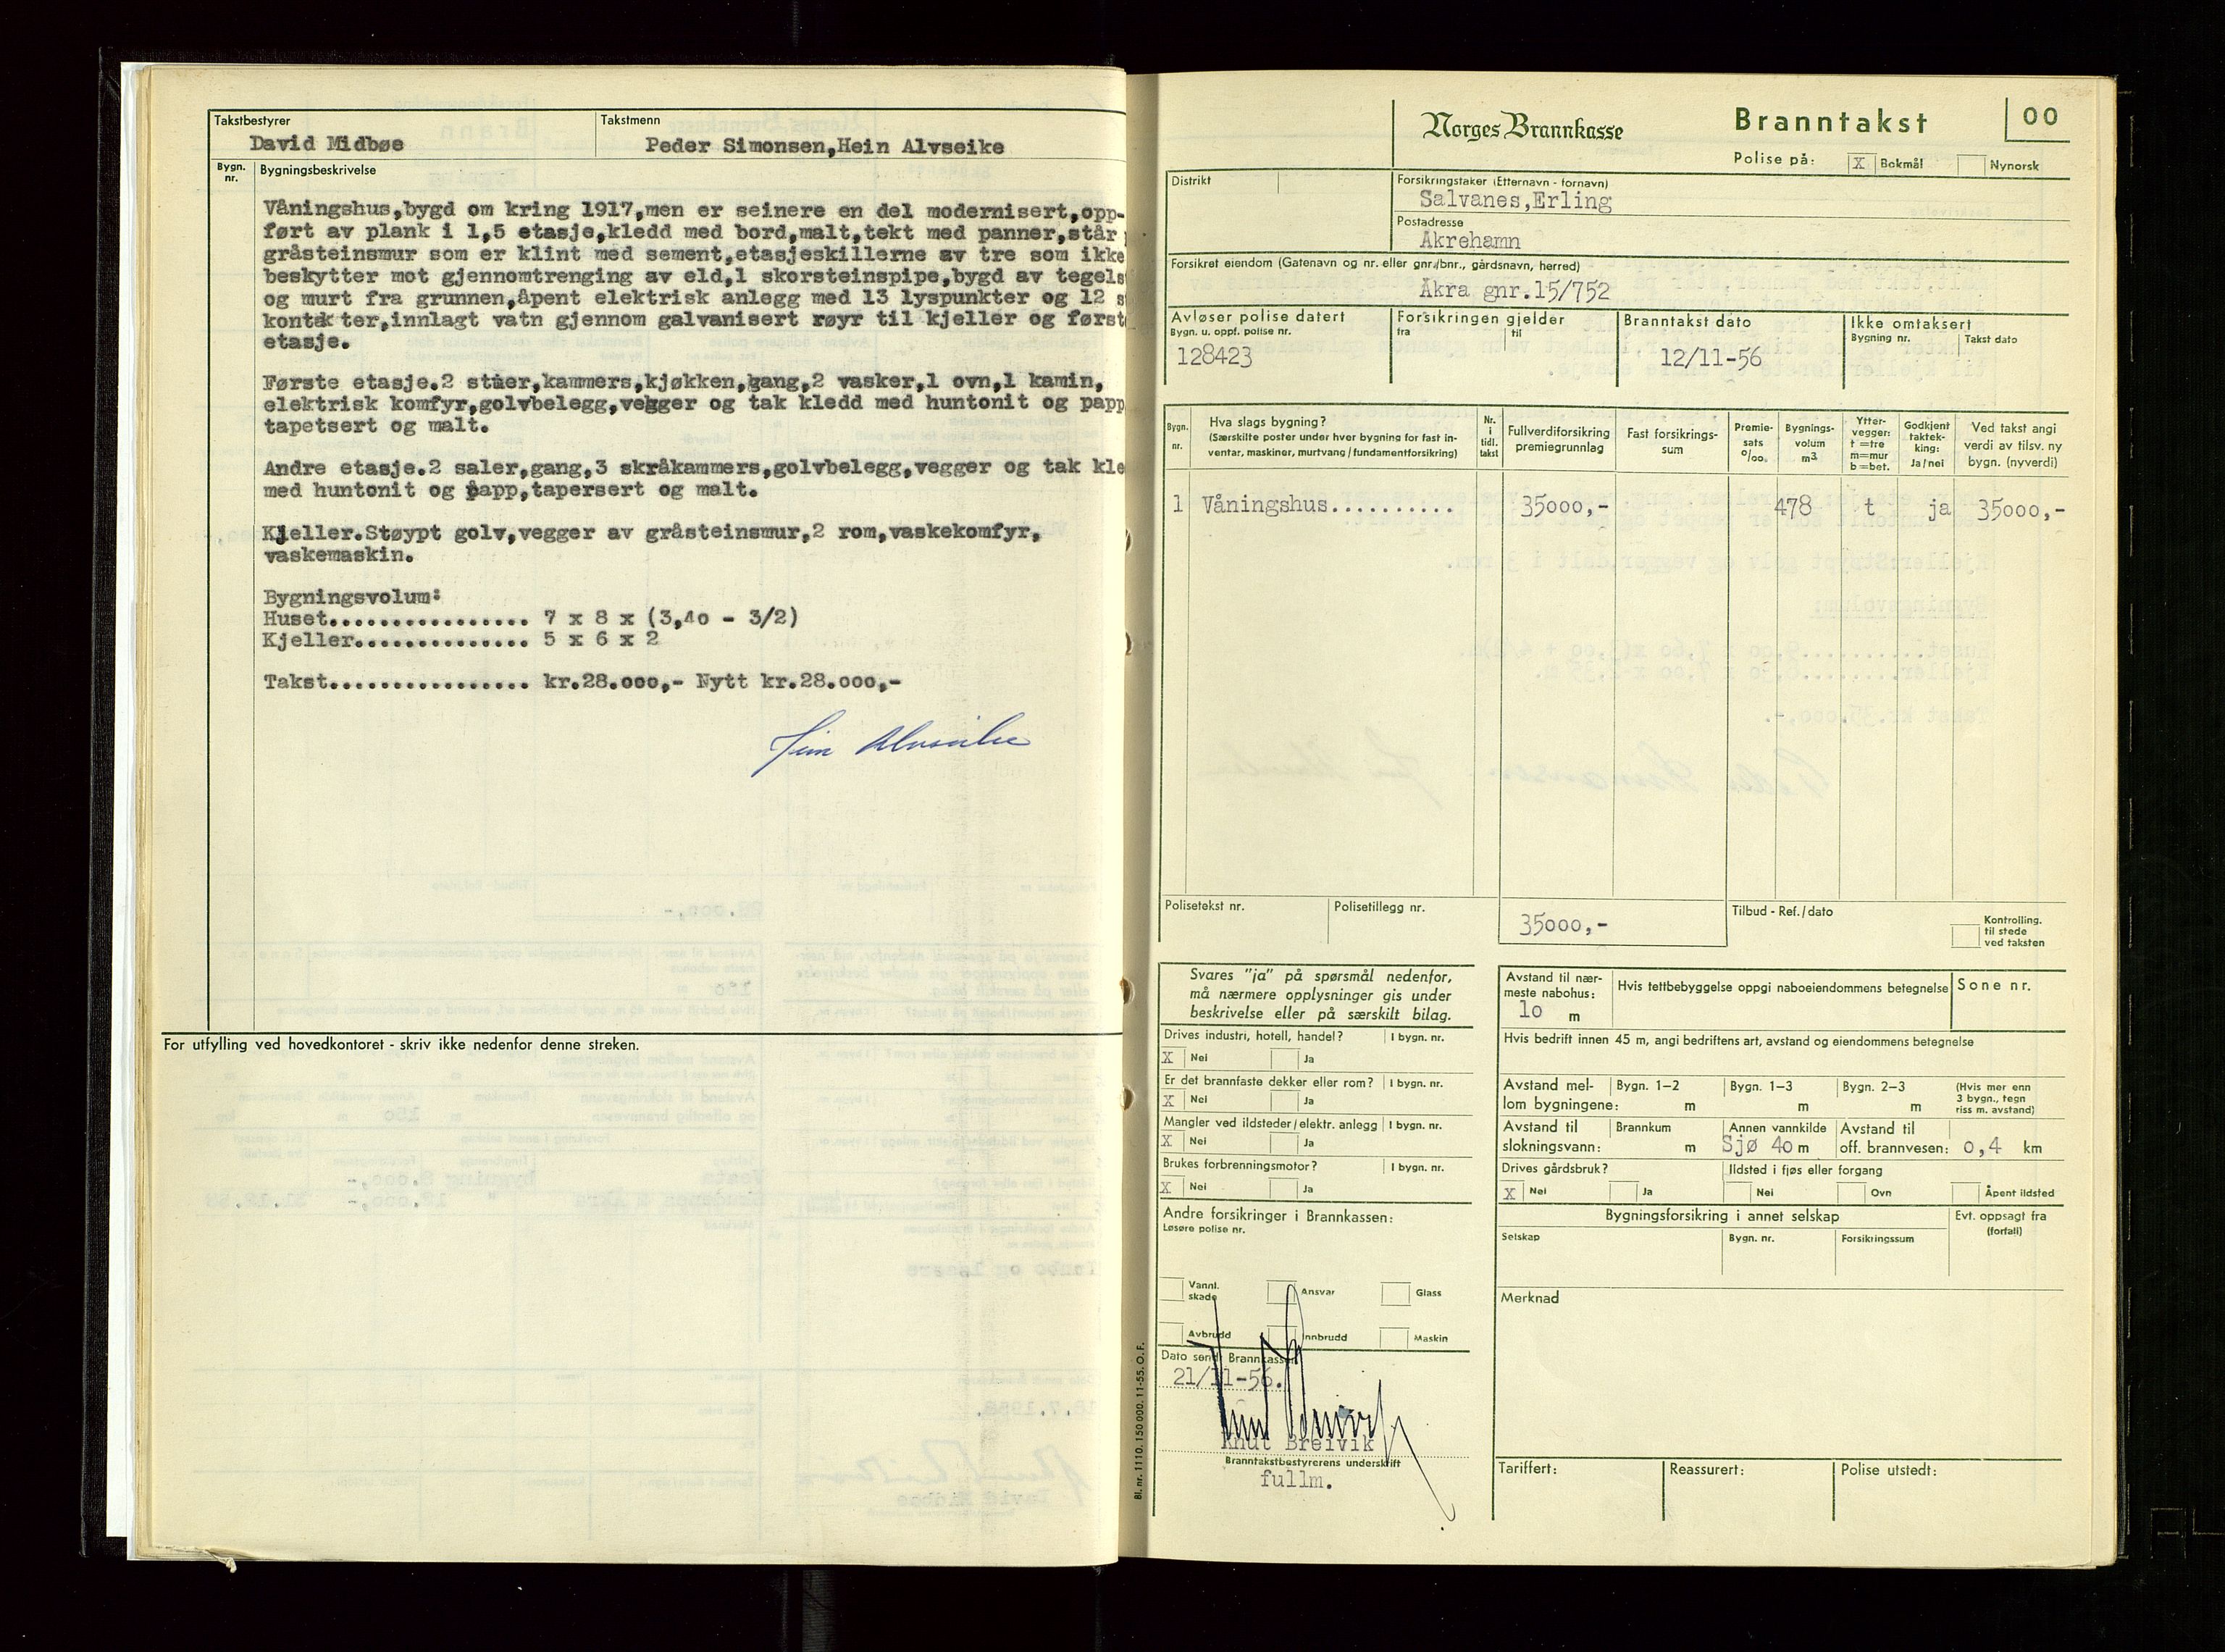 Takstbestyrer
David Midbøe
Takstmenn
Peder Simonsen,Hein Alvseike
Bygn. nr.
Bygningsbeskrivelse
Våningshus,bygd om kring 1917,men er seinere en del modernisert,opp-
ført av plank i 1,5 etasje,kledd med bord,malt,tekt med panner,står
gråsteinsmur som er klint med sement,etasjeskillerne av tre som ikke
beskytter mot gjennomtrenging av eld,1 skorsteinspipe,bygd av tegels
og murt fra grunnen,åpent elektrisk anlegg med 13 lyspunkter og 12 s
kontakter,innlagt vatn gjennom galvanisert røyr til kjeller og først
etasje.
Første etasje.2 stuer,kammers,kjøkken,gang,2 vasker,1 ovn,1 kamin,
elektrisk komfyr,golvbelegg,vegger og tak kledd med huntonit og papp
tapetsert og malt.
Andre etasje.2 saler,gang,3 skråkammers,golvbelegg,vegger og tak kle
med huntonit og papp,tapersert og malt.
Kjeller.Støypt golv,vegger av gråsteinsmur,2 rom,vaskekomfyr,
vaskemaskin.
Bygningsvolum:
Huset................ 7 x 8 x (3,40 - 3/2)
Kjeller.............. 5 x 6 x 2
Takst................ kr.28.000,- Nytt kr.28.000,-
Alvseike
For utfylling ved hovedkontoret - skriv ikke nedenfor denne streken.
Norges Brannkasse
Branntakst
00
Polise på: X Bokmål Nynorsk
Distrikt
Forsikringstaker (Etternavn - fornavn)
Salvanes,Erling
Postadresse
Åkrehamn
Forsikret eiendom (Gatenavn og nr. eller gnr./bnr., gårdsnavn, herred)
Åkra gnr.15/752
Avløser polise datert
Bygn. u. oppf. polise nr.
128423
Forsikringen gjelder
fra til
Branntakst dato
12/11-56
Ikke omtaksert
Bygning nr. Takst dato
Bygn. nr.
Hva slags bygning?
(Særskilte poster under hver bygning for fast in-
ventar, maskiner, murtvang/fundamentforsikring)
Nr. i tidl. takst
Fullverdiforsikring premiegrunnlag
Fast forsikrings-sum
Premie-sats o/oo
Bygnings-volum m3
Ytter-vegger: t=tre m=mur b=bet.
Godkjent taktek-king: Ja/nei
Ved takst angi verdi av tilsv. ny bygn. (nyverdi)
1 Våningshus.......... 35000,- 478 t ja 35000,-
Polisetekst nr.
Polisetillegg nr.
35000,-
Tilbud - Ref./dato
Kontrolling. til stede ved taksten
Svares "ja" på spørsmål nedenfor,
må nærmere opplysninger gis under
beskrivelse eller på særskilt bilag.
Drives industri, hotell, handel? I bygn. nr.
X Nei Ja
Er det brannfaste dekker eller rom? I bygn. nr.
X Nei Ja
Mangler ved ildsteder/elektr. anlegg I bygn. nr.
X Nei Ja
Brukes forbrenningsmotor? I bygn. nr.
X Nei Ja
Andre forsikringer i Brannkassen:
Løsøre polise nr.
Vannl. skade Ansvar Glass
Avbrudd Innbrudd Maskin
Dato sendt Brannkassen
21/11-56.
Knut Breivik
Branntakstbestyrerens underskrift
fullm.
Avstand til nær-
meste nabohus:
10 m
Hvis tettbebyggelse oppgi naboeiendommens betegnelse
Sone nr.
Hvis bedrift innen 45 m, angi bedriftens art, avstand og eiendommens betegnelse
Avstand mel-
lom bygningene:
Bygn. 1-2 m
Bygn. 1-3 m
Bygn. 2-3 m
(Hvis mer enn 3 bygn., tegn riss m. avstand)
Avstand til
slokningsvann:
Brannkum m
Annen vannkilde
Sjø 40 m
Avstand til
off. brannvesen: 0,4 km
Drives gårdsbruk?
X Nei Ja
Ildsted i fjøs eller forgang
Nei Ovn Åpent ildsted
Bygningsforsikring i annet selskap
Evt. oppsagt fra (forfall)
Selskap Bygn. nr. Forsikringssum
Merknad
Tariffert: Reassurert: Polise utstedt:
Bl. nr. 1110. 150 000. 11-55. O. F.